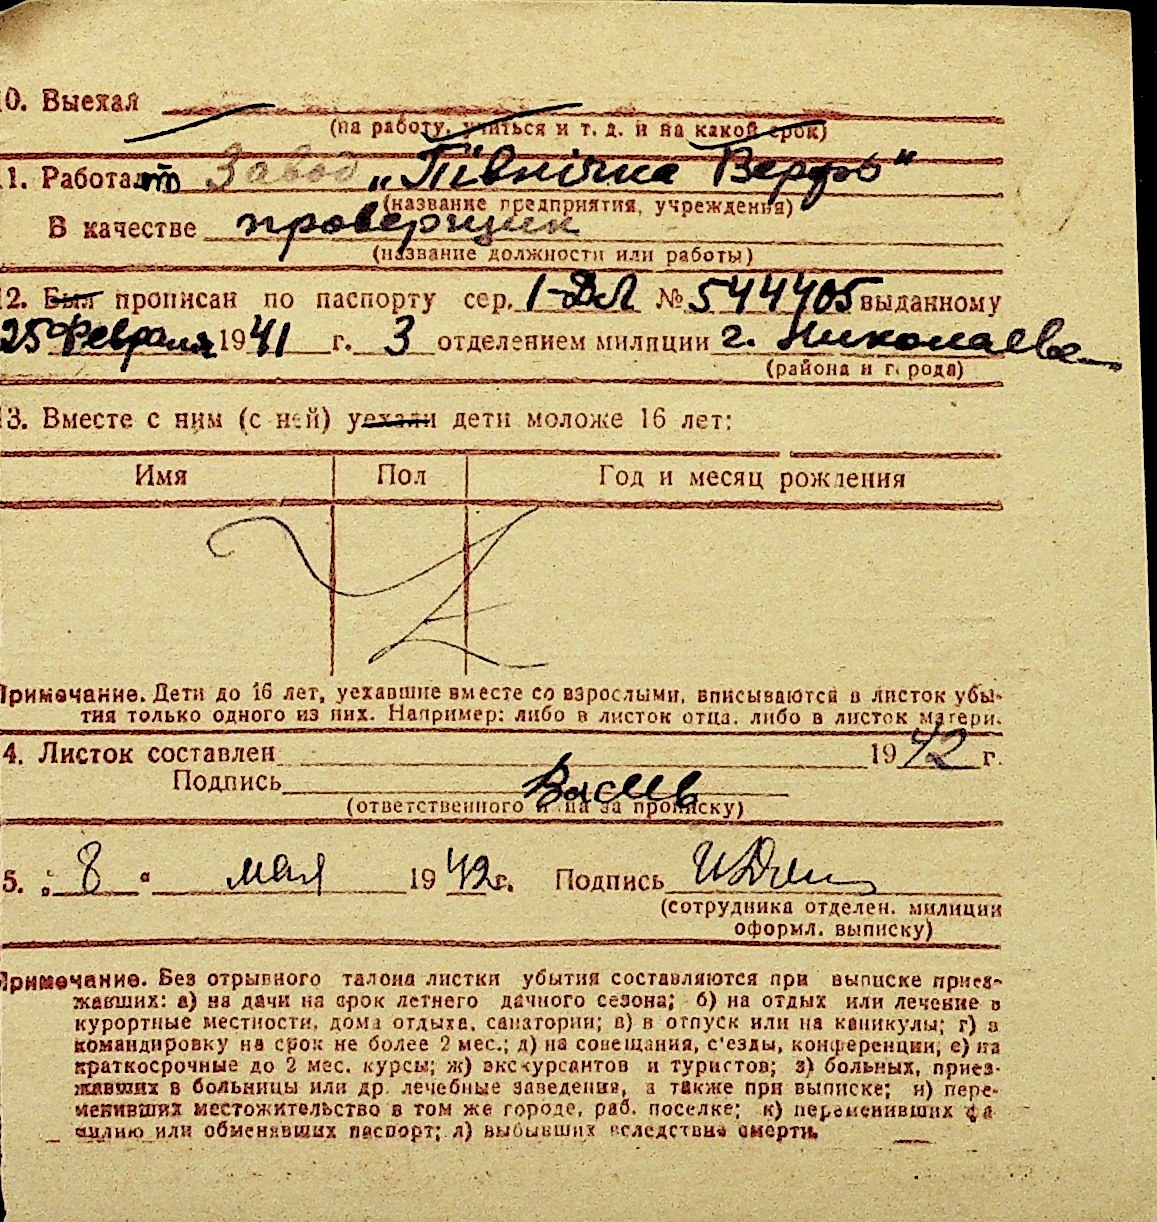 10. Выехал
(на работу, учиться и т. д. и на какой срок)
11. Работает Завод „Північна Верфь"
(название предприятия, учреждения)
В качестве проверщик
(название должности или работы)
12. Был прописан по паспорту сер. 1-ДЛ № 544405 выданному
25 Февраля 1941 г. 3 отделением милиции г. Николаева
(района и города)
13. Вместе с ним (с ней) уехали дети моложе 16 лет:
Имя Пол Год и месяц рождения
Примечание. Дети до 16 лет, уехавшие вместе со взрослыми, вписываются в листок убы-
тия только одного из них. Например: либо в листок отца, либо в листок матери.
4. Листок составлен 1942 г.
Подпись
(ответственного лица за прописку)
5. „ 8 " мая 1942 г. Подпись
(сотрудника отделен. милиции
оформл. выписку)
Примечание. Без отрывного талона листки убытия составляются при выписке приез-
жавших: а) на дачи на срок летнего дачного сезона; б) на отдых или лечение в
курортные местности, дома отдыха, санатории; в) в отпуск или на каникулы; г) в
командировку на срок не более 2 мес.; д) на совещания, с'езды, конференции; е) на
краткосрочные до 2 мес. курсы; ж) экскурсантов и туристов; з) больных, приез-
жавших в больницы или др. лечебные заведения, а также при выписке; и) пере-
менивших местожительство в том же городе, раб. поселке; к) переменивших фа
милию или обменявших паспорт; л) выбывших вследствие смерти.